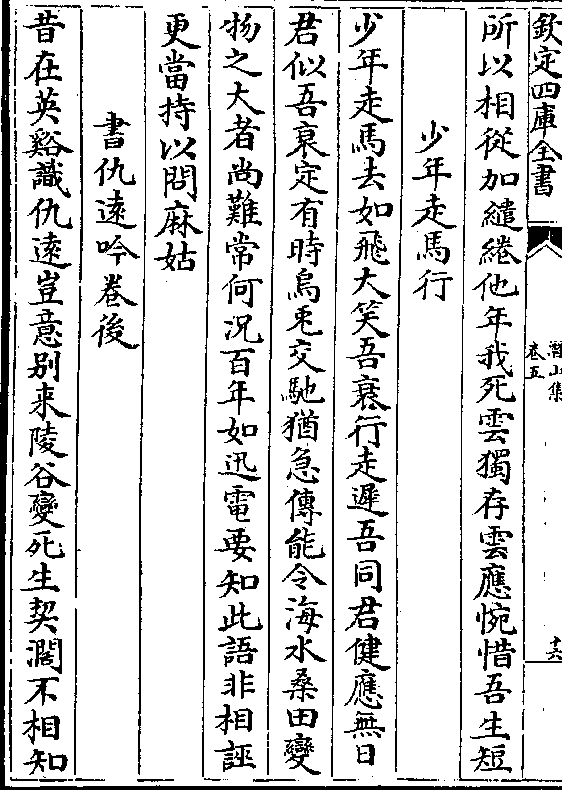 欽定四庫全書
潛山集
卷五
十六
所以相從加繾綣他年我死雲獨存雲應惋惜吾生短
少年走馬行
少年走馬去如飛大笑吾衰行走遲吾同君健應無日
君似吾衰定有時烏兎交馳猶急傳能令海水桑田變
物之大者尚難常何況百年如迅電要知此語非相誣
更當持以問麻姑
書仇遠吟卷後
昔在英谿識仇遠豈意别来陵谷變死生契濶不相知